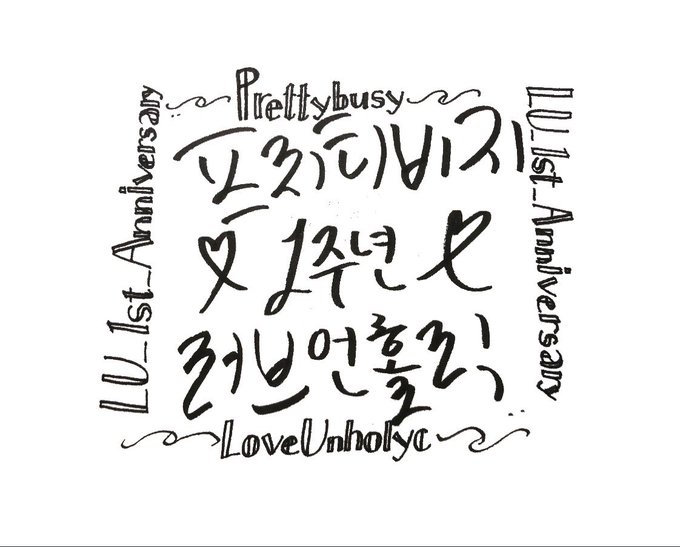 Prettybusy
프리티비지
1주년
러브언홀릭
LoveUnholyc
LU_1st_Anniversary
LU_1st_Anniversary